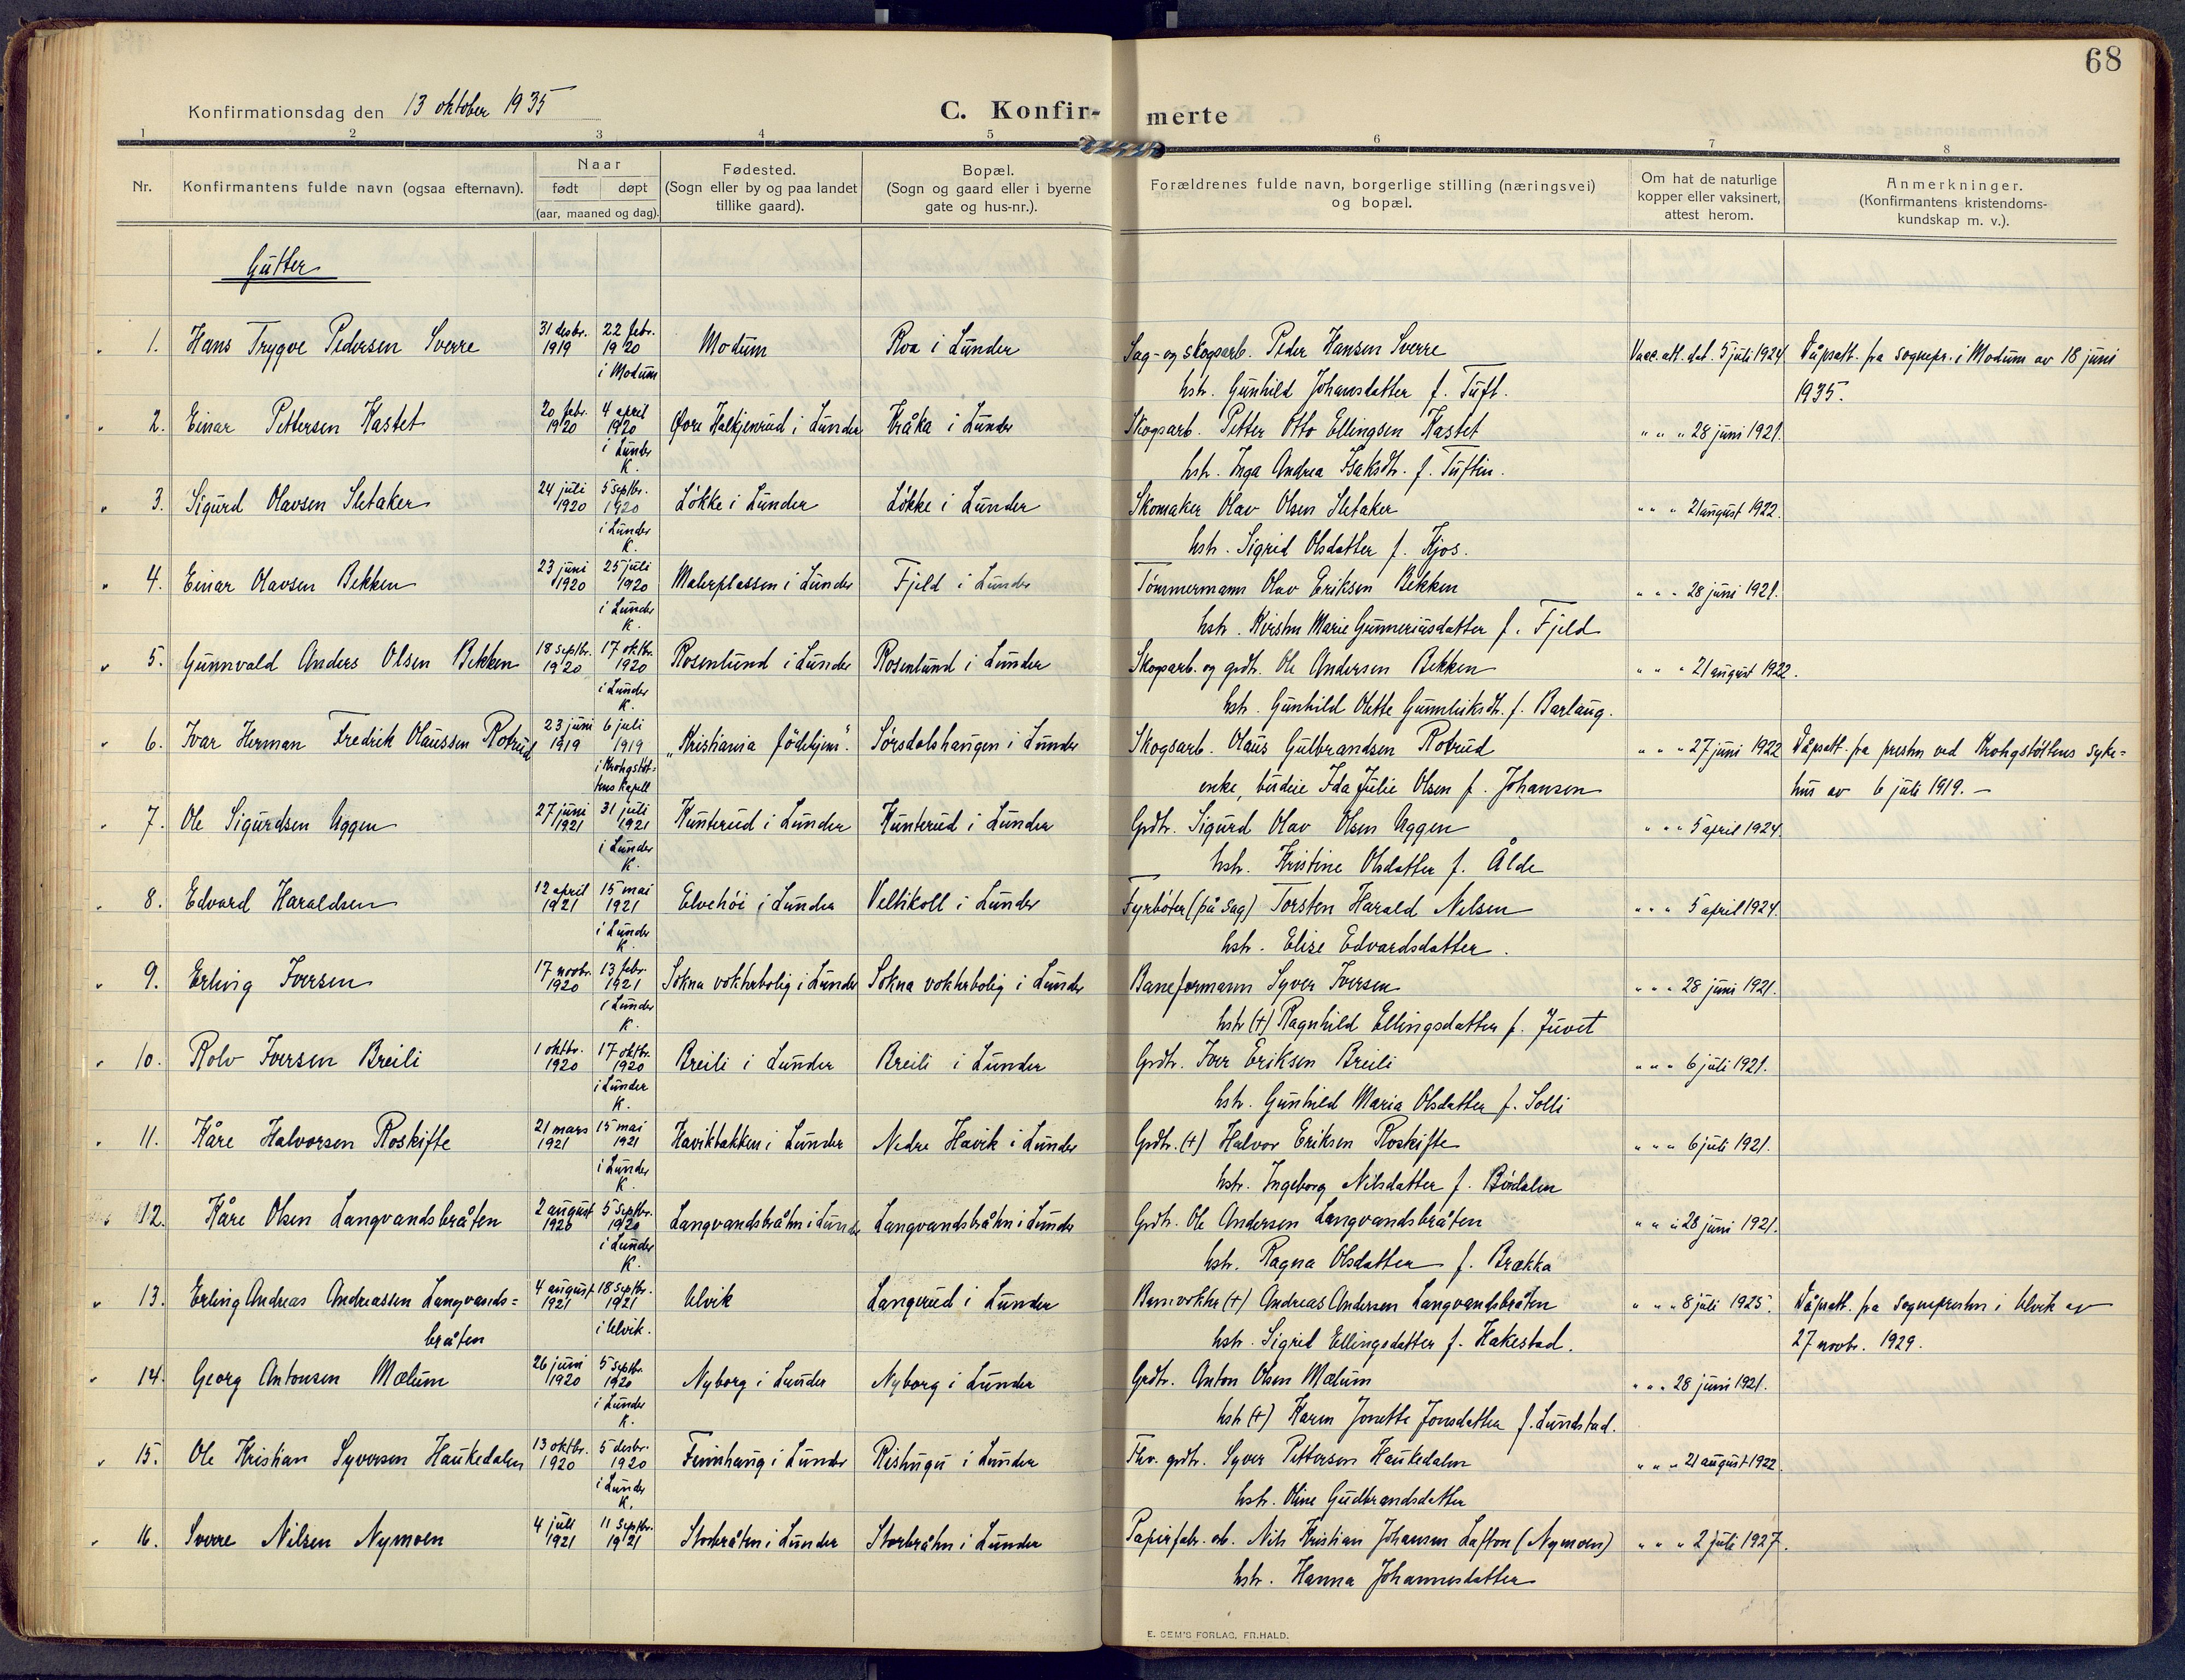 68
Konfirmationsdag den 13 oktober 1935
C. Konfir- merte
1 2 3 4 5 6 7 8
Nr.
Konfirmantens fulde navn (ogsaa efternavn).
Naar
født døpt
(aar, maaned og dag).
Fødested.
(Sogn eller by og paa landet
tillike gaard).
Bopæl.
(Sogn og gaard eller i byerne
gate og hus-nr.).
Forældrenes fulde navn, borgerlige stilling (næringsvei)
og bopæl.
Om hat de naturlige
kopper eller vaksinert,
attest herom.
Anmerkninger.
(Konfirmantens kristendoms-
kundskap m. v.).
Gutter
1. Hans Trygve Pedersen Sverre 31 desbr. 1919 22 febr. 1920 i Modum Modum Roa i Lunder Sag- og skogsarb. Peder Hansen Sverre Vacc. att. dat. 5 juli 1924 Dåpsatt. fra sognepr. i Modum av 18 juni
hstr. Gunhild Johansdatter f. Tuft. 1935.
2. Einar Pettersen Kastet 20 febr. 1920 4 april 1920 i Lunder K. Øvre Halkjenrud i Lunder Kråka i Lunder Skogsarb. Petter Otto Ellingsen Kastet " " " 28 juni 1921.
hstr. Inga Andrea Isaksdtr. f. Tuftin.
3. Sigurd Olavsen Sletaker 24 juli 1920 5 septbr. 1920 i Lunder K. Løkke i Lunder Løkke i Lunder Skomaker Olav Olsen Sletaker " " " 21 august 1922.
hstr. Sigrid Olsdatter f. Kjos.
4. Einar Olavsen Bekken 23 juni 1920 25 juli 1920 i Lunder K. Malerplassen i Lunder Fjeld i Lunder Tømmermann Olav Eriksen Bekken " " " 28 juni 1921.
hstr. Kirsten Marie Gunneriusdatter f. Fjeld
5. Gunnvald Anders Olsen Bekken 18 septbr. 1920 17 oktbr. 1920 i Lunder K. Rosenlund i Lunder Rosenlund i Lunder Skogsarb. og grdtr. Ole Andersen Bekken " " " 21 august 1922.
hstr. Gunhild Olette Gunnleiksdtr. f. Barlaug.
6. Ivar Herman Fredrik Olaussen Rotrud 23 juni 1919 6 juli 1919 i Krohgstøt= tens kapell "Kristiania fødehjem". Sørsdalshaugen i Lunder Skogsarb. Olaus Gulbrandsen Rotrud " " " 27 juni 1922 Dåpsatt. fra presten ved Krohgstøttens syke=
enke, budeie Ida Julie Olsen f. Johansen hus av 6 juli 1919. —
7. Ole Sigurdsen Uggen 27 juni 1921 31 juli 1921 i Lunder K. Kunterud i Lunder Kunterud i Lunder Grdtr. Sigurd Olav Olsen Uggen " " " 5 april 1924.
hstr. Kristine Olsdatter f. Ålde
8. Edvard Haraldsen 12 april 1921 15 mai 1921 i Lunder K. Elvehøi i Lunder Veltikoll i Lunder Fyrbøter (på sag) Torsten Harald Nilsen " " " 5 april 1924.
hstr. Elise Edvardsdatter.
9. Erling Iversen 17 novbr. 1920 13 febr. 1921 i Lunder K. Sokna vokterbolig i Lunder Sokna vokterbolig i Lunder Baneformann Syver Iversen " " " 28 juni 1921.
hstr (+) Ragnhild Ellingsdatter f. Juvet
10. Rolv Iversen Breili 1 oktbr. 1920 17 oktbr. 1920 i Lunder K. Breili i Lunder Breili i Lunder Grdtr. Iver Eriksen Breili " " " 6 juli 1921.
hstr. Gunhild Maria Olsdatter f. Solli
11. Kåre Halvorsen Roskifte 21 mars 1921 15 mai 1921 i Lunder K. Havikbakken i Lunder Nedre Havik i Lunder Grdtr. (+) Halvor Eriksen Roskifte " " " 6 juli 1921.
hstr. Ingeborg Nilsdatter f. Bindalen
12. Kåre Olsen Langvandsbråten 2 august 1920 5 septbr. 1920 i Lunder K. Langvandsbråten i Lunder Langvandsbråten i Lunder Grdtr. Ole Andersen Langvandsbråten " " " 28 juni 1921.
hstr. Ragna Olsdatter f. Brækka
13. Erling Andreas Andreassen Langvands= 4 august 1921 18 septbr. 1921 i Ulvik. Ulvik Langerud i Lunder Banevokter (+) Andreas Andersen Langvandsbråten " " " 8 juli 1925. Dåpsatt. fra sognepresten i Ulvik av
bråten hstr. Sigrid Ellingsdatter f. Hakestad. 27 novbr. 1929.
14. Georg Antonsen Mælum 26 juni 1920 5 septbr. 1920 i Lunder K. Nyborg i Lunder Nyborg i Lunder Grdtr. Anton Olsen Mælum " " " 28 juni 1921.
hstr (+) Karen Jonette Jonsdatter f. Lundstad.
15. Ole Kristian Syversen Haukedalen 13 oktbr. 1920 5 desbr. 1920 i Lunder K. Finnhaug i Lunder Rishugu i Lunder Fhv. grdtr. Syver Pettersen Haukedalen " " " 21 august 1922.
hstr. Oline Gudbrandsdatter
16. Sverre Nilsen Nymoen 4 juli 1921 11 septbr. 1921 Storbråten i Lunder Storbråten i Lunder Papirfabr. arb. Nils Kristian Johansen Laffon (Nymoen) " " " 2 juli 1927.
hstr. Hanna Johannesdatter
E. SEM'S FORLAG, FR.HALD.